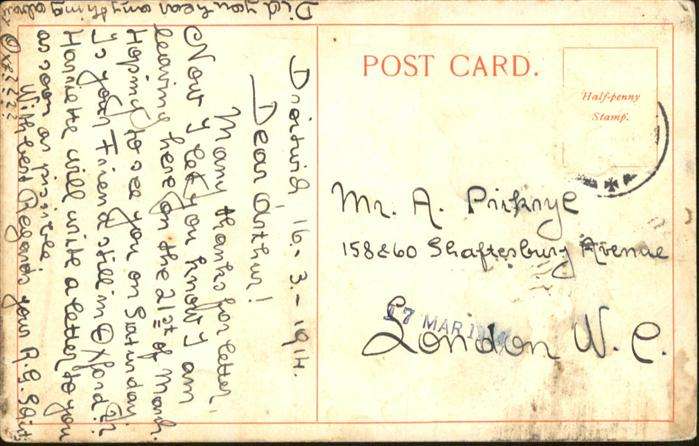 Droitwich, 16.-3.-1914.
Dear Arthur!
Many thanks for letter,
Now I let you know I am
leaving here on the 21st of March.
Hoping to see you on Saturday
Is your Friend still in Oxford??
Henriette will write a letter to you
as soon as possible
With best Regards your R. G.
Did you hear anything about
POST CARD.
Half-penny
Stamp.
Mr. A. Prikryl
158&60 Shaftesbury Avenue
London W. C.
17 MAR